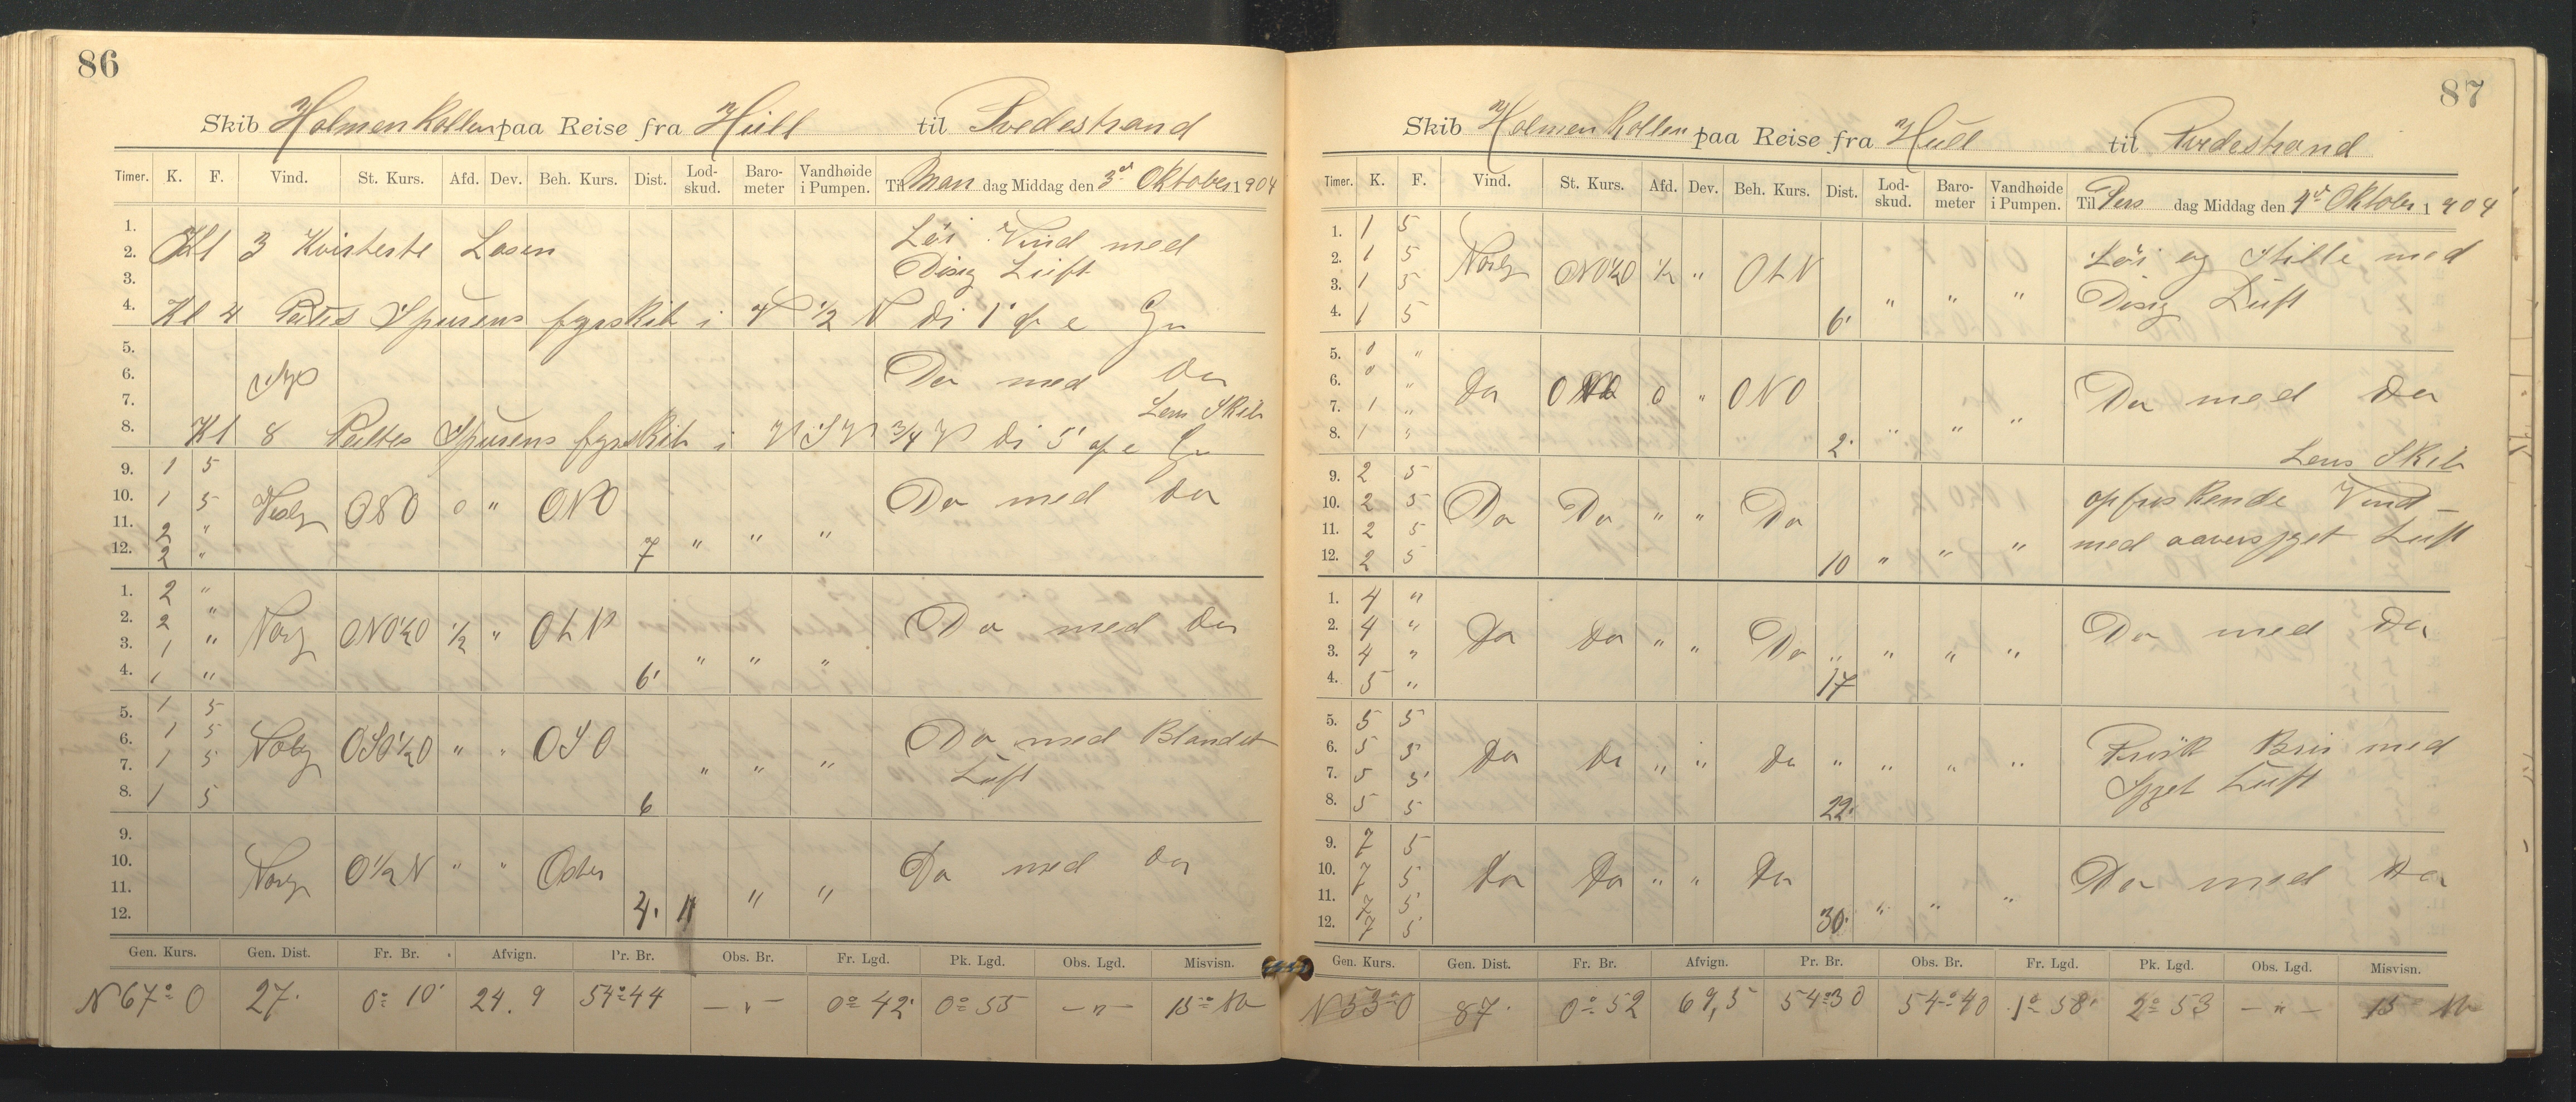 86
Skib Holmenkollen paa Reise fra Hull til Tvedestrand
Timer. K. F. Vind. St. Kurs. Afd. Dev. Beh. Kurs. Dist. Lod-skud. Baro-meter Vandhøide i Pumpen. Til Man dag Middag den 3d Oktober 1904
1.
2. Kl 3 Kvisterte Losen Löi Vind med
3. Disig Luft
4. Kl 4 Spurens fyrskib i
5.
6. Do med do
7. Lens Skib
8. Kl 8 Spurens fyrskib i ¾ di 5'
9. 1 5
10. 1 5 ONO 0 " ONO Do med do
11. 2 "
12. 2 " 7 " " "
1. 2 "
2. 2 " ONO½O ½ " OLN Do med do
3. 1 "
4. 1 " 6' " " "
5. 1 5
6. 1 5 OSO½O " " OSO Do med Blandet
7. 1 5 Luft
8. 1 5 6 " " "
9.
10. O½N " " Osten Do med do
11.
12. 4. " " "
Gen. Kurs. Gen. Dist. Fr. Br. Afvign. Pr. Br. Obs. Br. Fr. Lgd. Pk. Lgd. Obs. Lgd. Misvisn.
N 67° O 27' 0° 10' 24.9 54° 44 — " — 0° 42' 0° 55 — " — 15°
87
Skib Holmenkollen paa Reise fra Hull til Tvedestrand
Timer. K. F. Vind. St. Kurs. Afd. Dev. Beh. Kurs. Dist. Lod-skud. Baro-meter Vandhøide i Pumpen. Til Tirs dag Middag den 4d Oktober 1904
1. 1 5
2. 1 5 ONO½O ½ " OLN Löi og Stille med
3. 1 5 Disig Luft
4. 1 5 6' " " "
5. 0 "
6. 0 " do 0 " ONO Do med do
7. 1 "
8. 1 " 2' " " "
Lens Skib
9. 2 5
10. 2 5 Do Do " " Do opfriskende Vind
11. 2 5 med Luft
12. 2 5 10 " " "
1. 4 "
2. 4 " do do " " Do Do med do
3. 4 "
4. 5 " 17 " " "
5. 5 5
6. 5 5 do do " " do Frisk Bris med
7. 5 5 Luft
8. 5 5 22' " " "
9. 7 5
10. 7 5 do do " " do Do med do
11. 7 5
12. 7 5 30' " " "
Gen. Kurs. Gen. Dist. Fr. Br. Afvign. Pr. Br. Obs. Br. Fr. Lgd. Pk. Lgd. Obs. Lgd. Misvisn.
N 53° O 87' 0° 52 69,5 54° 30 54° 40 1° 58' 2° 53 — " — 15